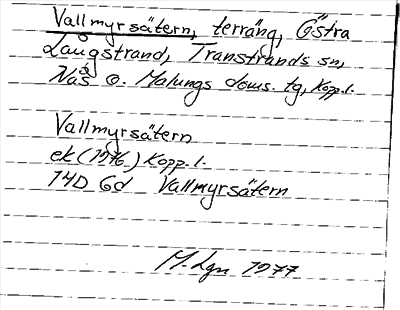 Vallmyrsätern, terräng, Östra
Långstrand, Transtrands sn,
Nås o. Malungs doms. tg, Kopp.l.
Vallmyrsätern
ek (1976) Kopp.l.
14D 6d Vallmyrsätern
M. Lgn 1977